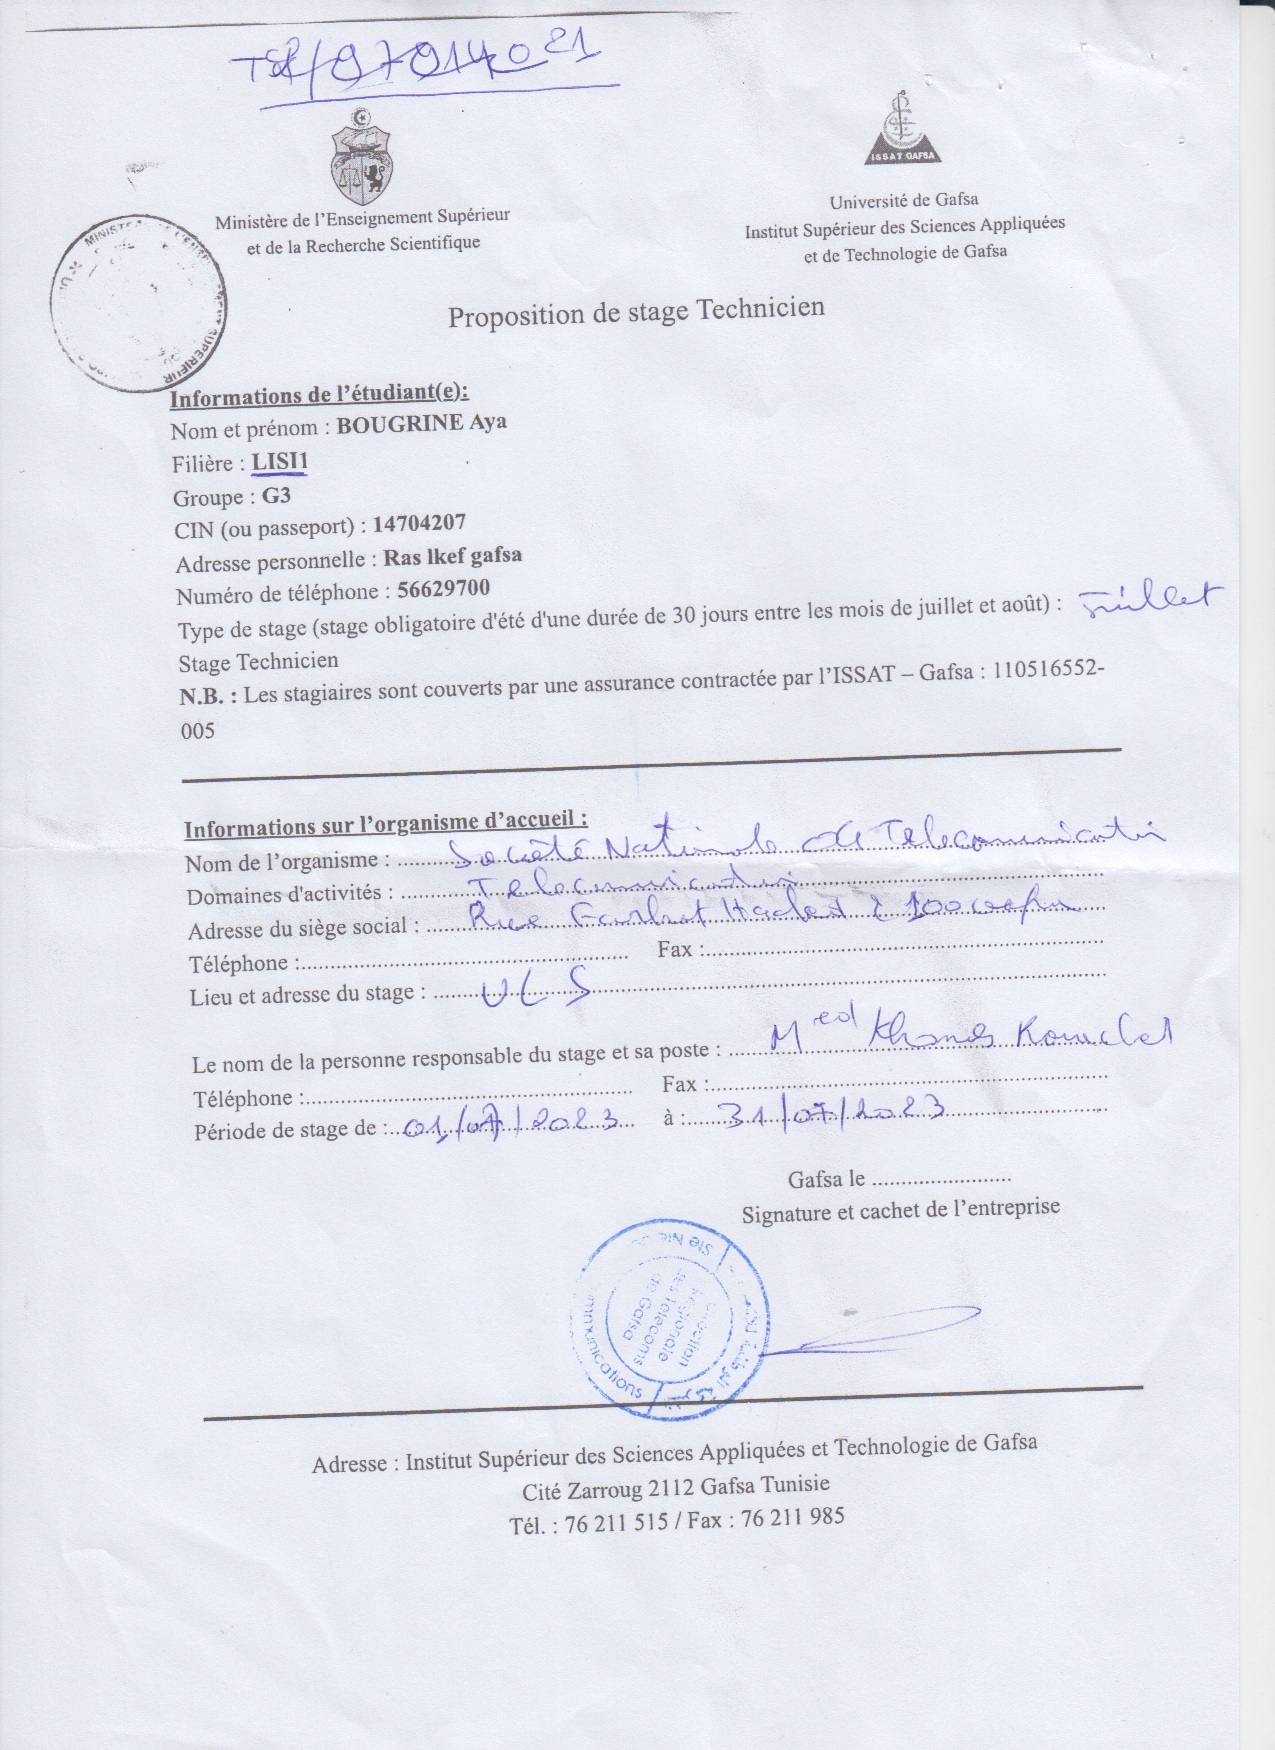 ISSAT GAFSA
Ministère de l'Enseignement Supérieur
et de la Recherche Scientifique
Université de Gafsa
Institut Supérieur des Sciences Appliquées
et de Technologie de Gafsa
Proposition de stage Technicien
Informations de l'étudiant(e):
Nom et prénom : BOUGRINE Aya
Filière : LISI1
Groupe : G3
CIN (ou passeport) : 14704207
Adresse personnelle : Ras lkef gafsa
Numéro de téléphone : 56629700
Type de stage (stage obligatoire d'été d'une durée de 30 jours entre les mois de juillet et août) : Juillet
Stage Technicien
N.B. : Les stagiaires sont couverts par une assurance contractée par l'ISSAT – Gafsa : 110516552-
005
Informations sur l'organisme d'accueil :
Nom de l'organisme : Société Nationale de Telecommunicatin
Domaines d'activités : Telecomunication
Adresse du siège social : Rue Farhat Hached 2100
Téléphone : Fax :
Lieu et adresse du stage : ULS
Le nom de la personne responsable du stage et sa poste : Med
Téléphone : Fax :
Période de stage de : 01/07/2023 à : 31/07/2023
Gafsa le
Signature et cachet de l'entreprise
Ste Nle
Direction
Régionale
des Telecoms
de Gafsa
Adresse : Institut Supérieur des Sciences Appliquées et Technologie de Gafsa
Cité Zarroug 2112 Gafsa Tunisie
Tél. : 76 211 515 / Fax : 76 211 985